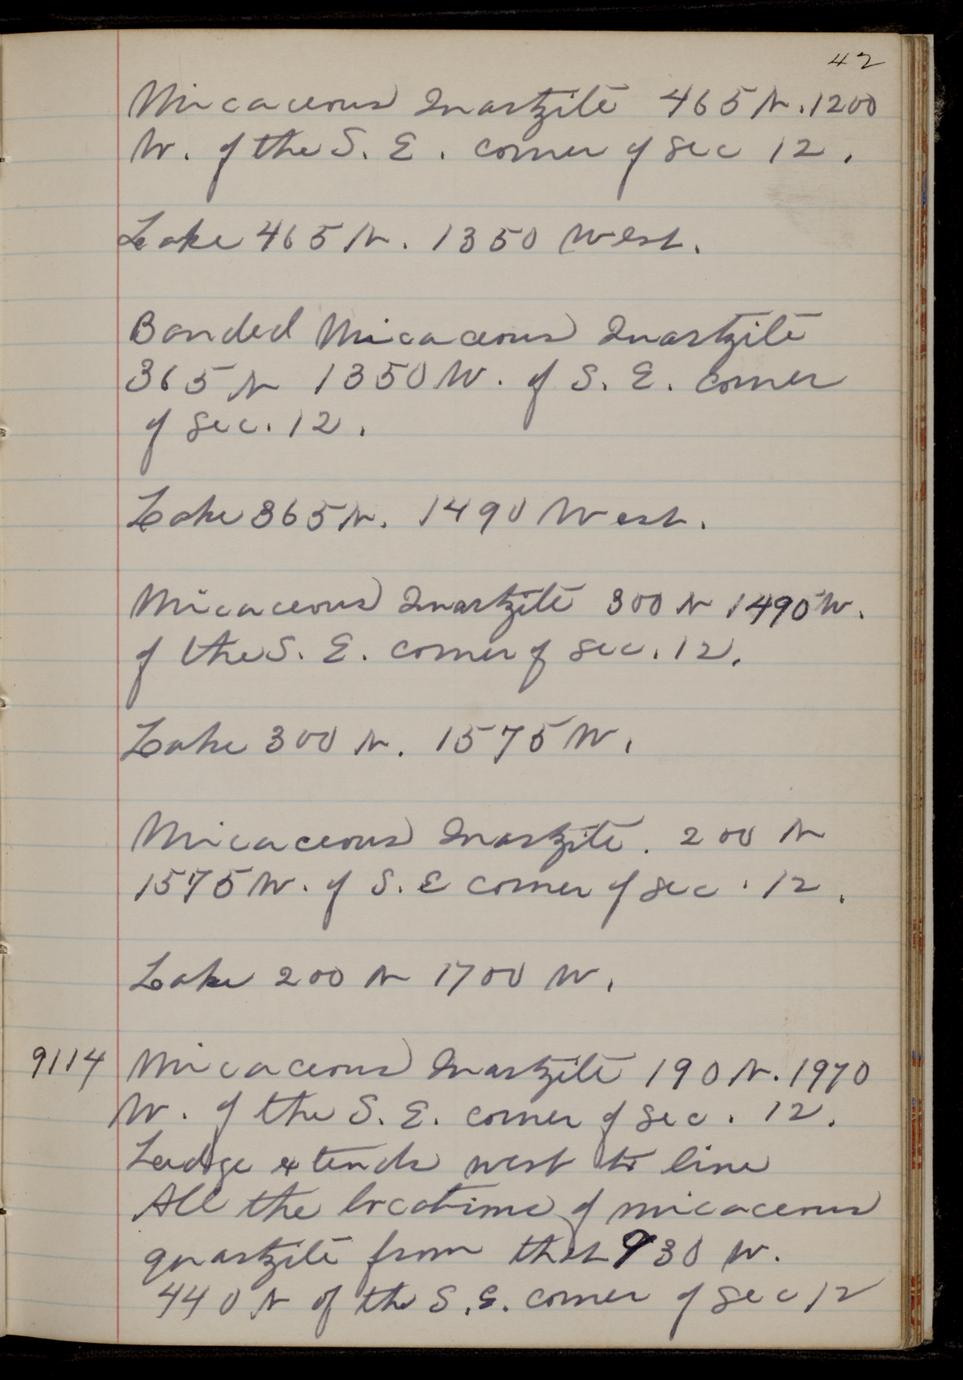 42
Micaceous Quartzite 465 N. 1200
W. of the S. E. corner of Sec 12.
Lake 465 N. 1350 West.
Banded Micaceous Quartzite
365 N 1350 W. of S. E. corner
of Sec. 12.
Lake 365 N. 1490 West.
Micaceous Quartzite 300 N 1490 W.
of the S. E. corner of Sec. 12.
Lake 300 N. 1575 W.
Micaceous Quartzite. 200 N
1575 W. of S. E corner of Sec. 12.
Lake 200 N 1700 W.
9114 Micaceous Quartzite 190 N. 1970
W. of the S. E. corner of Sec. 12.
Ledge extends west to line
All the locations of micaceous
quartzite from that 930 W.
440 N of the S. E. corner of Sec 12